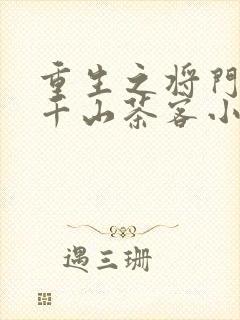 重生之将门
千山茶客小
遇三珊